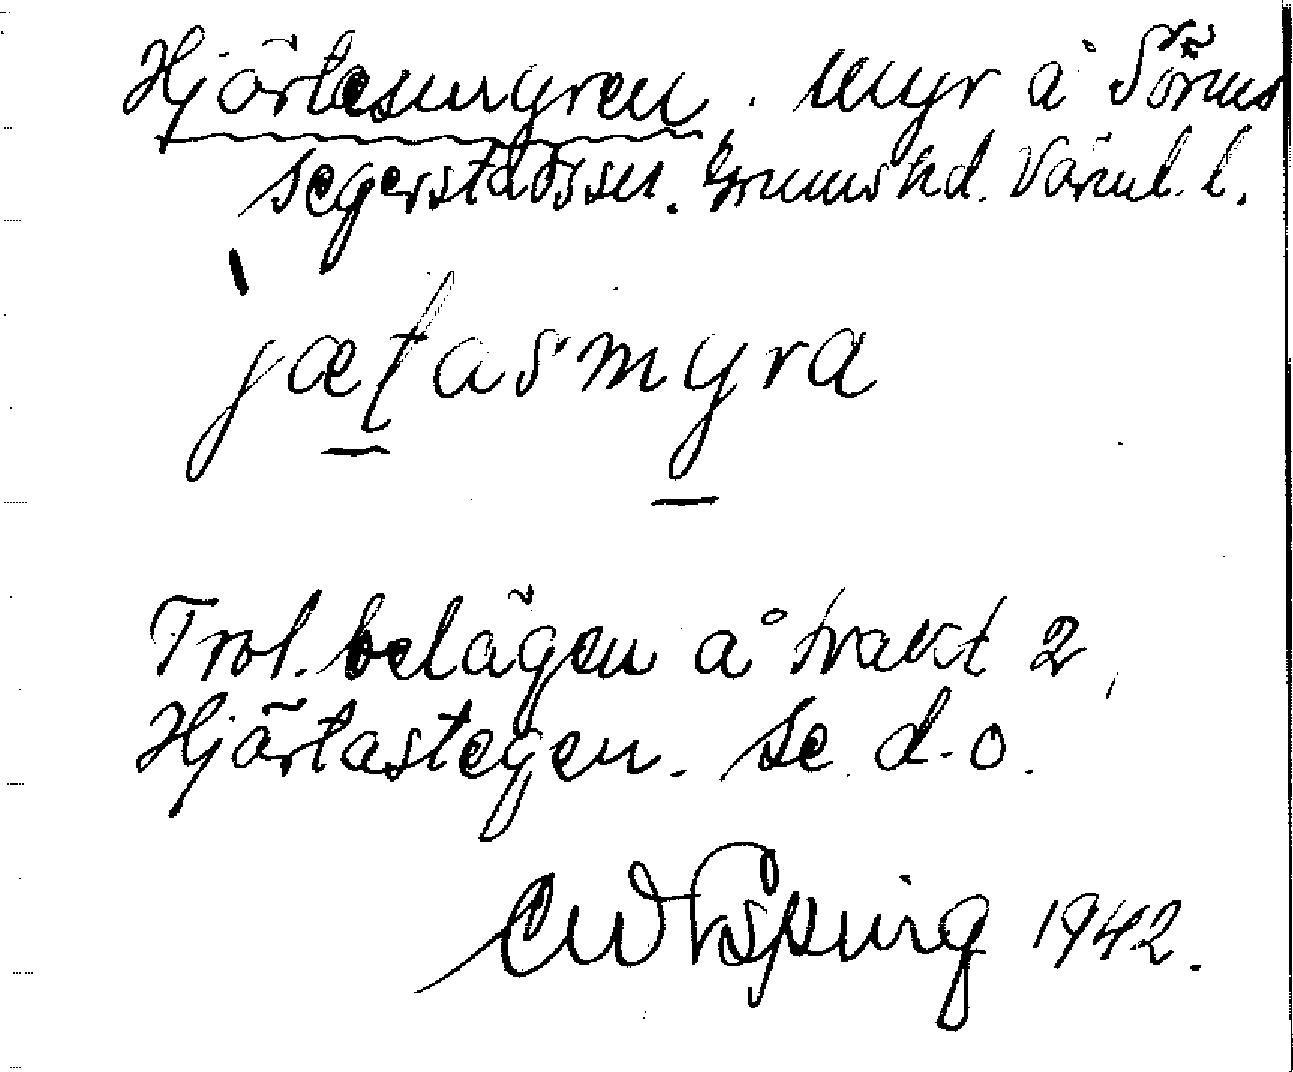 Hjärtasmyren. myr å Sörms
Segerstads sn. Grums hd. Värml. l.
`jætasmyra
Trol. belägen å trakt 2,
Hjärtastegen. se d.o.
1942.